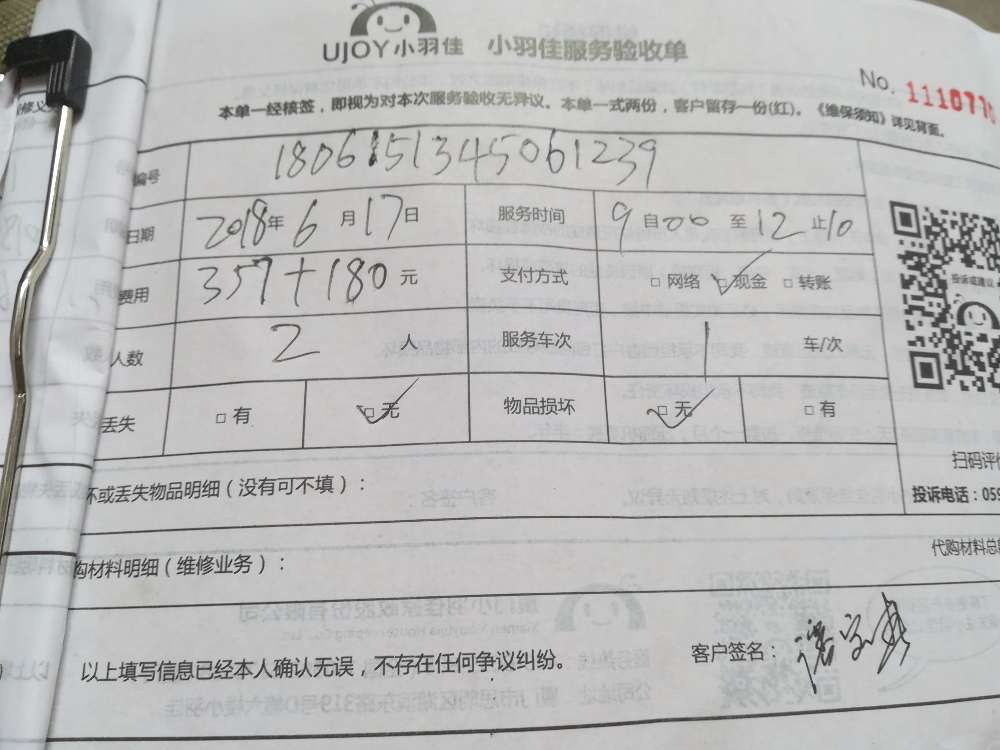 UJOY小羽佳 小羽佳服务验收单
No. 111077
本单一经核签，即视为对本次服务验收无异议。本单一式两份，客户留存一份(红)。《维保须知》详见背面。
编号 1806151345061239
日期 2018年6月17日 服务时间 9自00至12止10
费用 357+180元 支付方式 □网络 ☑现金 □转账
人数 2人 服务车次 1 车/次
丢失 □有 ☑无 物品损坏 ☑无 □有
坏或丢失物品明细（没有可不填）：
扫码评价
投诉或建议
投诉电话：059
代购材料总
购材料明细（维修业务）：
以上填写信息已经本人确认无误，不存在任何争议纠纷。
客户签名：